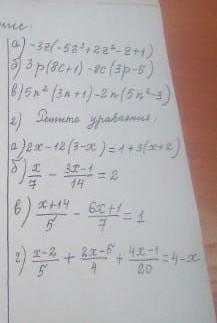 ние:
а) -3z(-5z³+2z²-z+1)
б) 3p(8c+1)-8c(3p-5)
в) 5n²(3n+1)-2n(5n²-3)
2) Решить уравнения:
а) 2x-12(3-x)=1+3(x+2)
б) x/7 - (3x-1)/14 = 2
в) (x+14)/5 - (6x+1)/7 = 1
г) (x-2)/5 + (2x-5)/4 + (4x-1)/20 = 4-x